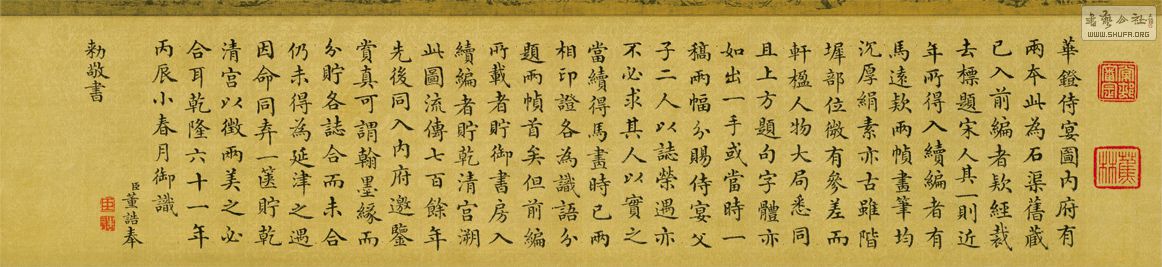 華鐙侍宴圖內府有
兩本此為石渠舊藏
已入前編者欵經裁
去標題宋人其一則近
年所得入續編者有
馬遠欵兩幀畫筆均
沉厚絹素亦古雖階
墀部位微有參差而
軒楹人物大局悉同
且上方題句字體亦
如出一手或當時一
稿兩幅分賜侍宴父
子二人以誌榮遇亦
不必求其人以實之
當續得馬畫時已兩
相印證各為識語分
題兩幀首矣但前編
所載者貯御書房入
續編者貯乾清宮溯
此圖流傳七百餘年
先後同入內府邀鑒
賞真可謂翰墨緣而
分貯各誌合而未合
仍未得為延津之遇
因命同弆一篋貯乾
清宮以徵兩美之必
合耳乾隆六十一年
丙辰小春月御識
臣董誥奉
勅敬書
蕉林
書藝公社
WWW.SHUFA.ORG